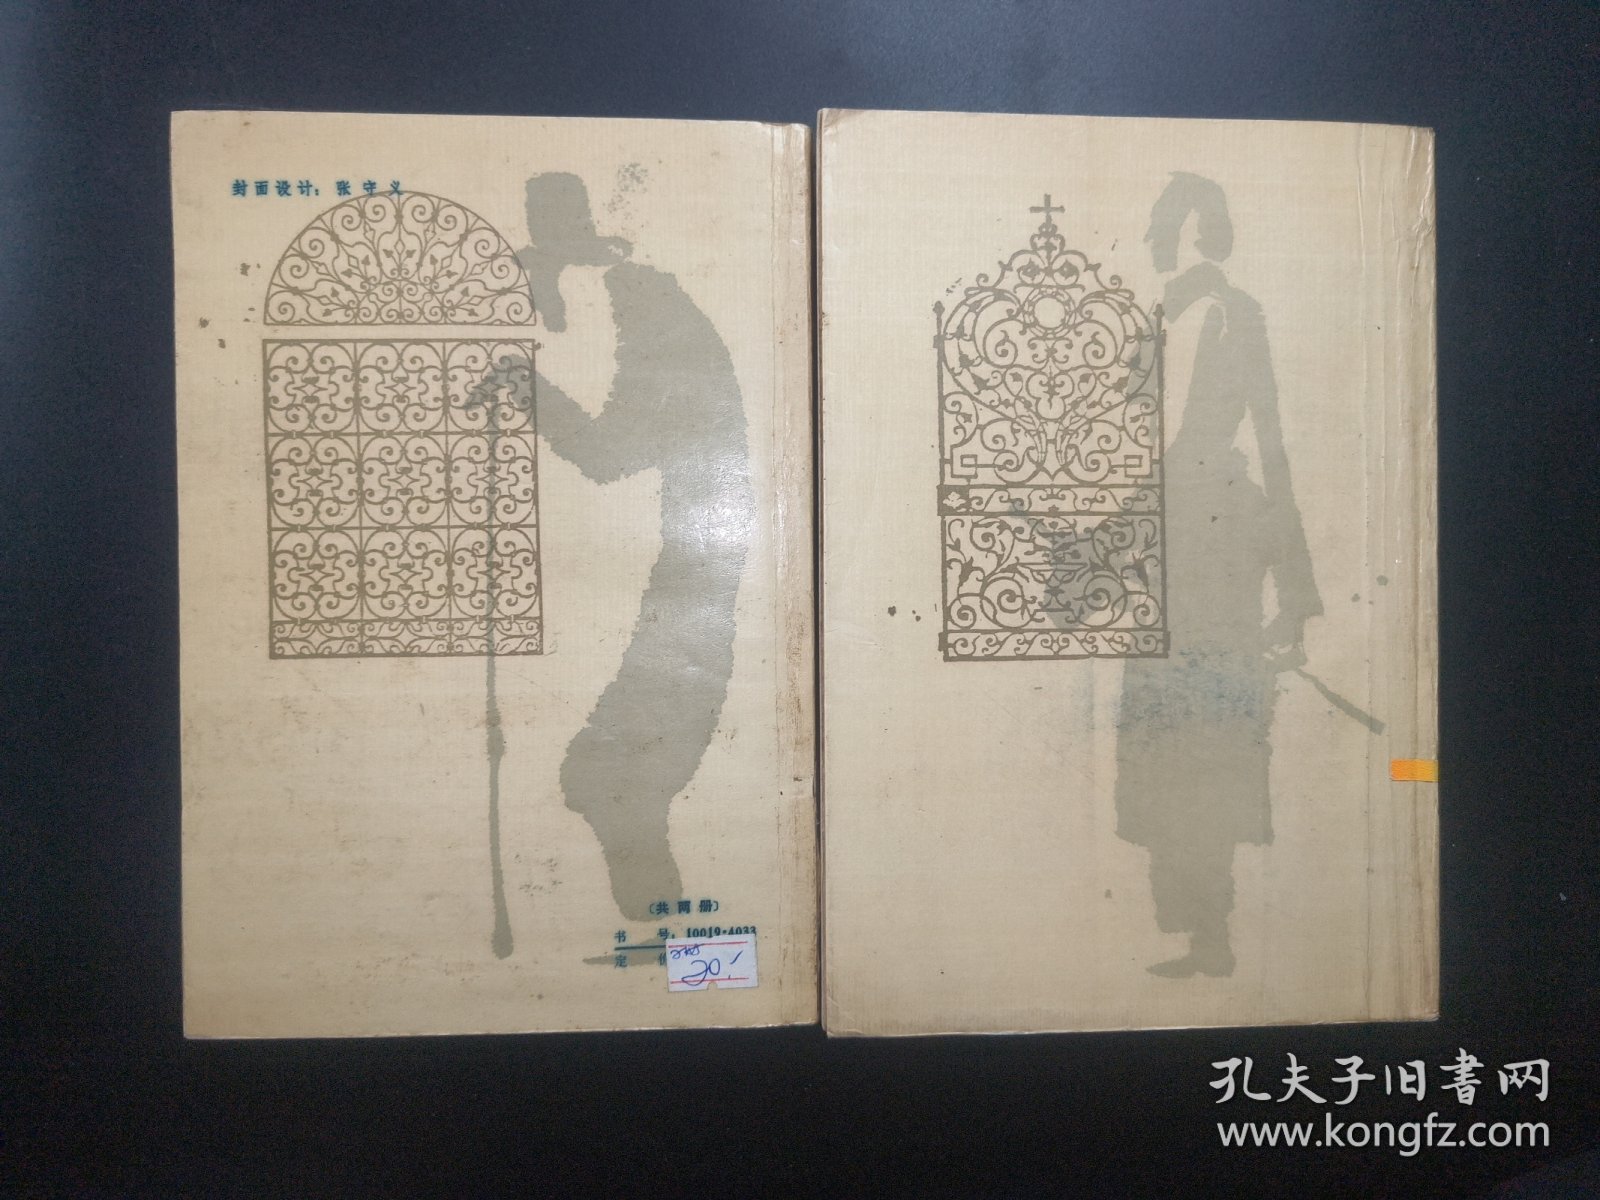 封面设计：张守义
（共两册）
书号：10019·4033
定价
20.-
孔夫子旧書网
www.kongfz.com